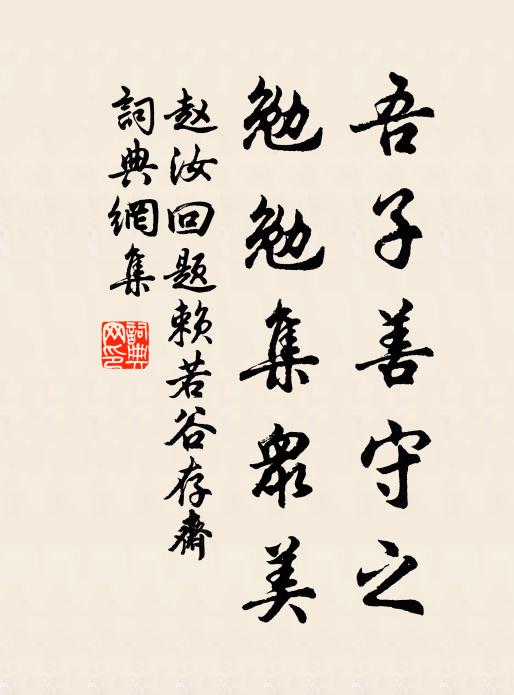 吾子善守之
勉勉集衆美
赵汝回题赖若谷存齋
詞典網集
詞典網印